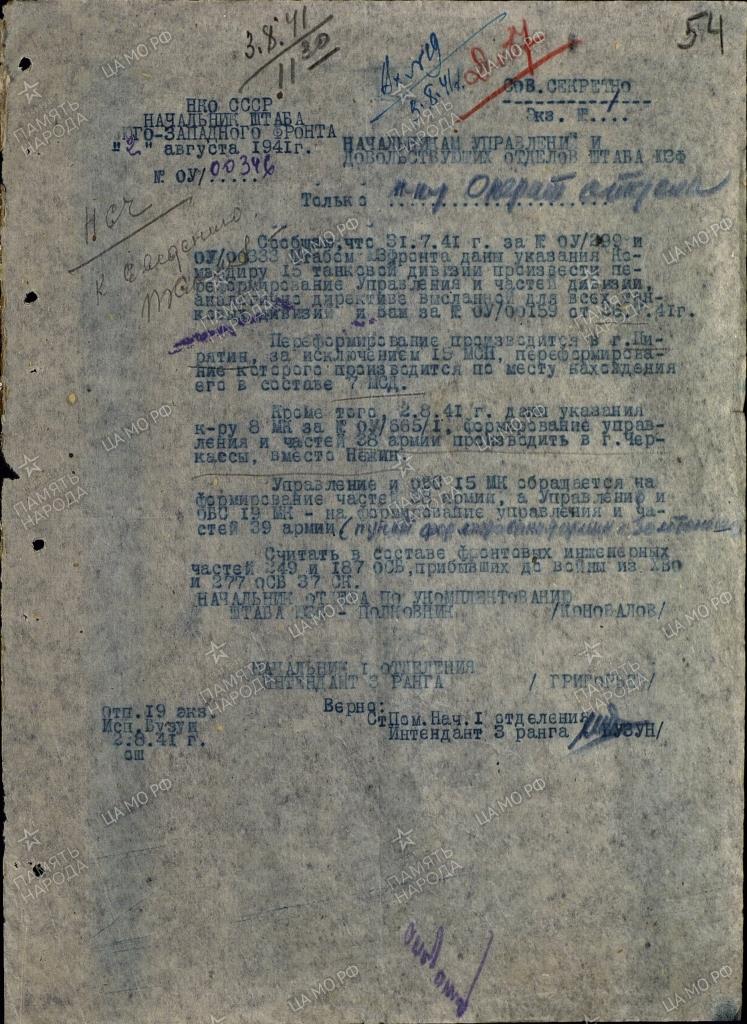 54
3.8.41
11 30
Д-4
СОВ.СЕКРЕТНО
Экз. №....
НКО СССР
НАЧАЛЬНИК ШТАБА
ЮГО-ЗАПАДНОГО ФРОНТА
"2" августа 1941г.
№ ОУ/00346
НАЧАЛЬНИКАМ УПРАВЛЕНИЙ И
ДОВОЛЬСТВУЮЩИХ ОТДЕЛОВ ШТАБА ЮЗФ
Только
НОУ
к сведению.
Сообщаю, что 31.7.41 г. за № ОУ/299 и
ОУ/00333 Штабом ЮЗФронта даны указания Ко-
мандиру 15 танковой дивизии произвести пе-
реформирование Управления и частей дивизии,
аналогично директиве высланной для всех тан-
ковых дивизий и Вам за № ОУ/00159 от 7.41г.
Переформирование производится в г.Пи-
рятин, за исключением 15 МСП, переформирова-
ние которого производится по месту нахождения
его в составе 7 МСД.
Кроме того, 2.8.41 г. даны указания
к-ру 8 МК за № ОУ/665/1, формирование управ-
ления и частей 38 армии производить в г.Чер-
кассы, вместо Нежин.
Управление и ОБС 15 МК обращается на
формирование частей 38 армии, а Управление и
ОБС 19 МК - на формирование управления и ча-
стей 39 армии
Считать в составе фронтовых инженерных
частей 249 и 187 ОСБ, прибывших до войны из ХВО
и 277 ОСБ 37 СК.
НАЧАЛЬНИК ОТДЕЛА ПО УКОМПЛЕКТОВАНИЮ
ШТАБА ЮЗФ - ПОЛКОВНИК /КОНОВАЛОВ/
НАЧАЛЬНИК 1 ОТДЕЛЕНИЯ
ИНТЕНДАНТ 3 РАНГА / ГРИГОРЬЕВ/
Отп.19 экз.
Исп.Бузун
2.8.41 г.
ош
Верно:
Ст.Пом.Нач.1 отделения
Интендант 3 ранга /БУЗУН/
ПАМЯТЬ НАРОДА
ЦАМО.РФ